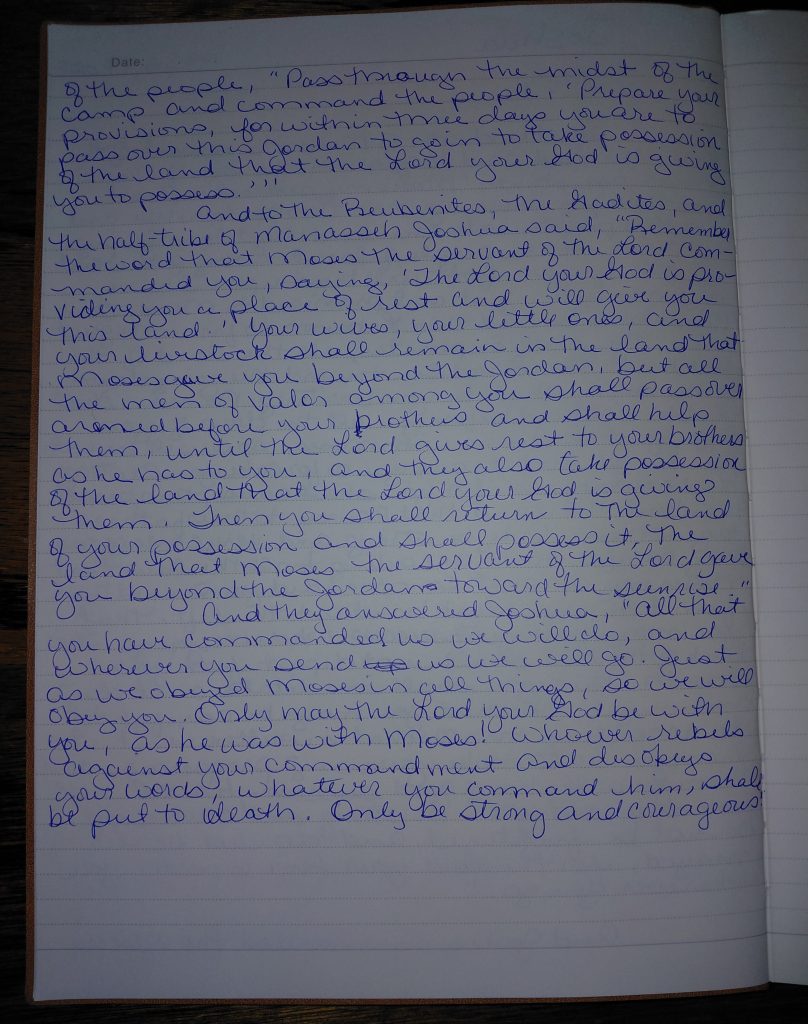 Date:
of the people, "Pass through the midst of the
camp and command the people, 'Prepare your
provisions, for within three days you are to
pass over this Jordan to go in to take possession
of the land that the Lord your God is giving
you to possess.'"
And to the Reubenites, the Gadites, and
the half-tribe of Manasseh Joshua said, "Remember
the word that Moses the servant of the Lord com-
manded you, saying, 'The Lord your God is pro-
viding you a place of rest and will give you
this land.' Your wives, your little ones, and
your livestock shall remain in the land that
Moses gave you beyond the Jordan, but all
the men of valor among you shall pass over
armed before your brothers and shall help
them, until the Lord gives rest to your brothers
as he has to you, and they also take possession
of the land that the Lord your God is giving
them. Then you shall return to the land
of your possession and shall possess it, the
land that Moses the servant of the Lord gave
you beyond the Jordan toward the sunrise."
And they answered Joshua, "All that
you have commanded us we will do, and
wherever you send us we will go. Just
as we obeyed Moses in all things, so we will
obey you. Only may the Lord your God be with
you, as he was with Moses! Whoever rebels
against your commandment and disobeys
your words, whatever you command him, shall
be put to death. Only be strong and courageous."